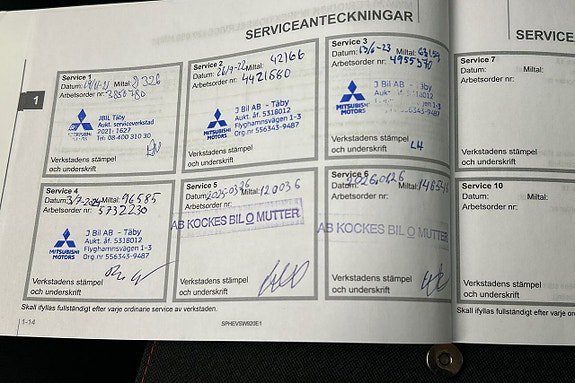 SERVICEANTECKNINGAR
SERVICE
1
Service 1
Datum: Miltal: 21326
Arbetsorder nr:
MITSUBISHI MOTORS
JBIL Täby
Aukt. serviceverkstad
2021: 1627
Tel: 08-400 310 30
Verkstadens stämpel
och underskrift
Service 2
Datum: 26/9-22 Miltal: 42166
Arbetsorder nr: 4421580
MITSUBISHI MOTORS
J Bil AB - Täby
Aukt. åf. 5318012
Flyghamnsvägen 1-3
Org.nr 556343-9487
Verkstadens stämpel
och underskrift
Service 3
Datum: 13/6-23 Miltal:
Arbetsorder nr: 4955370
MITSUBISHI MOTORS
J Bil AB - Täby
Aukt. åf. 5318012
Flyghamnsvägen 1-3
Org.nr 556343-9487
Verkstadens stämpel
och underskrift
Service 7
Datum: Miltal:
Arbetsorder nr:
Verkstadens stämpel
och underskrift
Service 4
Datum: 3/7-2024 Miltal: 96585
Arbetsorder nr: 5732230
MITSUBISHI MOTORS
J Bil AB - Täby
Aukt. åf. 5318012
Flyghamnsvägen 1-3
Org.nr 556343-9487
Verkstadens stämpel
och underskrift
Service 5
Datum: Miltal: 120036
Arbetsorder nr:
AB KOCKES BIL O MUTTER
Verkstadens stämpel
och underskrift
Service 6
Datum: 20260126 Miltal:
Arbetsorder nr:
AB KOCKES BIL O MUTTER
Verkstadens stämpel
och underskrift
Service 10
Datum: Miltal:
Arbetsorder nr:
Verkstadens stämpel
och underskrift
Skall ifyllas fullständigt efter varje ordinarie service av verkstaden.
Skall ifyllas fullständigt efter varje
1-14
SPHEVSW920E1